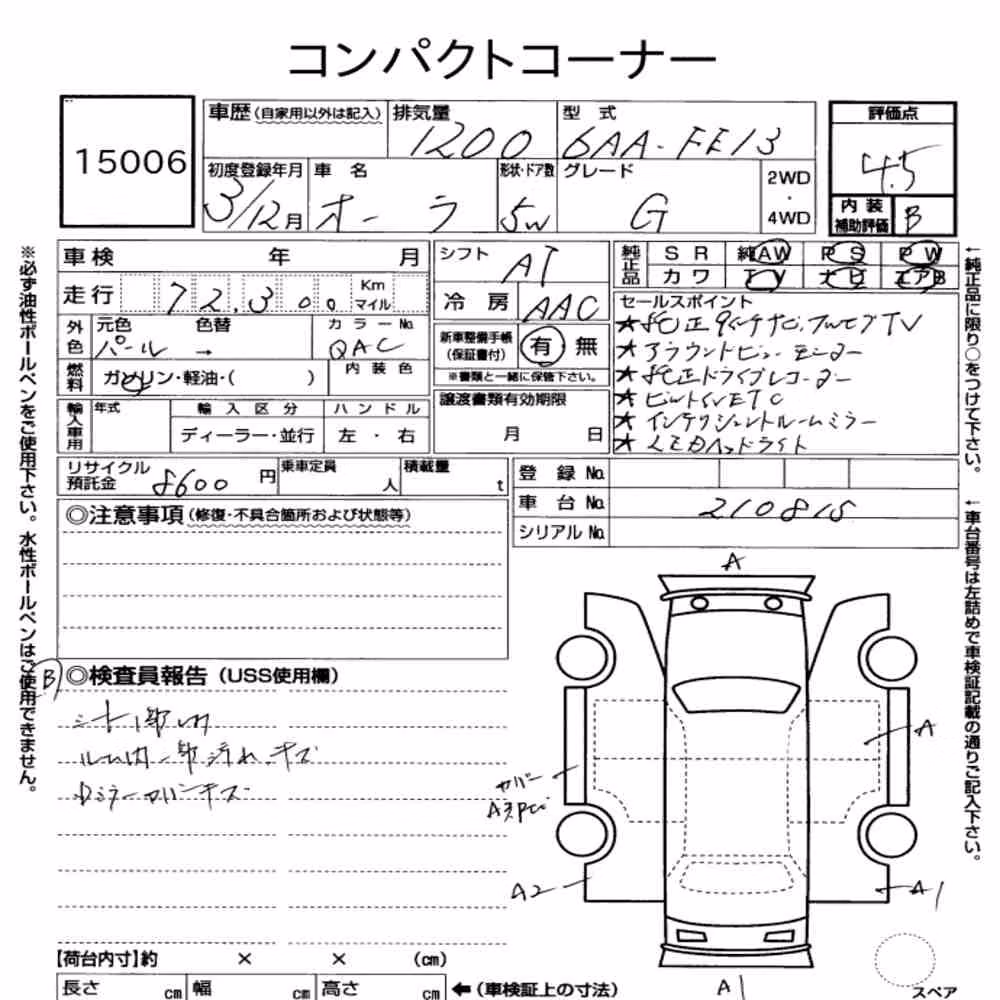 コンパクトコーナー
15006
車歴(自家用以外は記入) 排気量 1200 型式 6AA-FE13 評価点 4.5
初度登録年月 3/12月 車名 オーラ 形状・ドア数 5W グレード G 2WD・4WD
内装補助評価 B
車検 年 月 シフト AT 純正品 SR 純AW PS PW
走行 72,300 Km マイル 冷房 AAC カワ TV ナビ エアB
外色 元色 パール 色替 → カラーNo. QAC 内装色
新車整備手帳(保証書付) 有 無
※書類と一緒に保管下さい。
燃料 ガソリン・軽油・( )
輸入車用 年式 輸入区分 ディーラー・並行 ハンドル 左・右
譲渡書類有効期限 月 日
セールスポイント
★純正9インチナビ,フルセグTV
★アラウンドビューモニター
★純正ドライブレコーダー
★ビルトインETC
★インテリジェントルームミラー
★LEDヘッドライト
リサイクル預託金 8600円 乗車定員 人 積載量 t
登録No.
車台No. 210815
シリアルNo.
◎注意事項(修復・不具合箇所および状態等)
◎検査員報告(USS使用欄)
B
ルーム内一部汚れキズ
ミラーカバーキズ
A
A
カバー
A
A2
A1
A1
スペア
【荷台内寸】約 × × (cm)
長さ cm 幅 cm 高さ cm ←(車検証上の寸法)
※必ず油性ボールペンをご使用下さい。水性ボールペンはご使用できません。
←純正品に限り○をつけて下さい。
←車台番号は左詰めで車検証記載の通りご記入下さい。